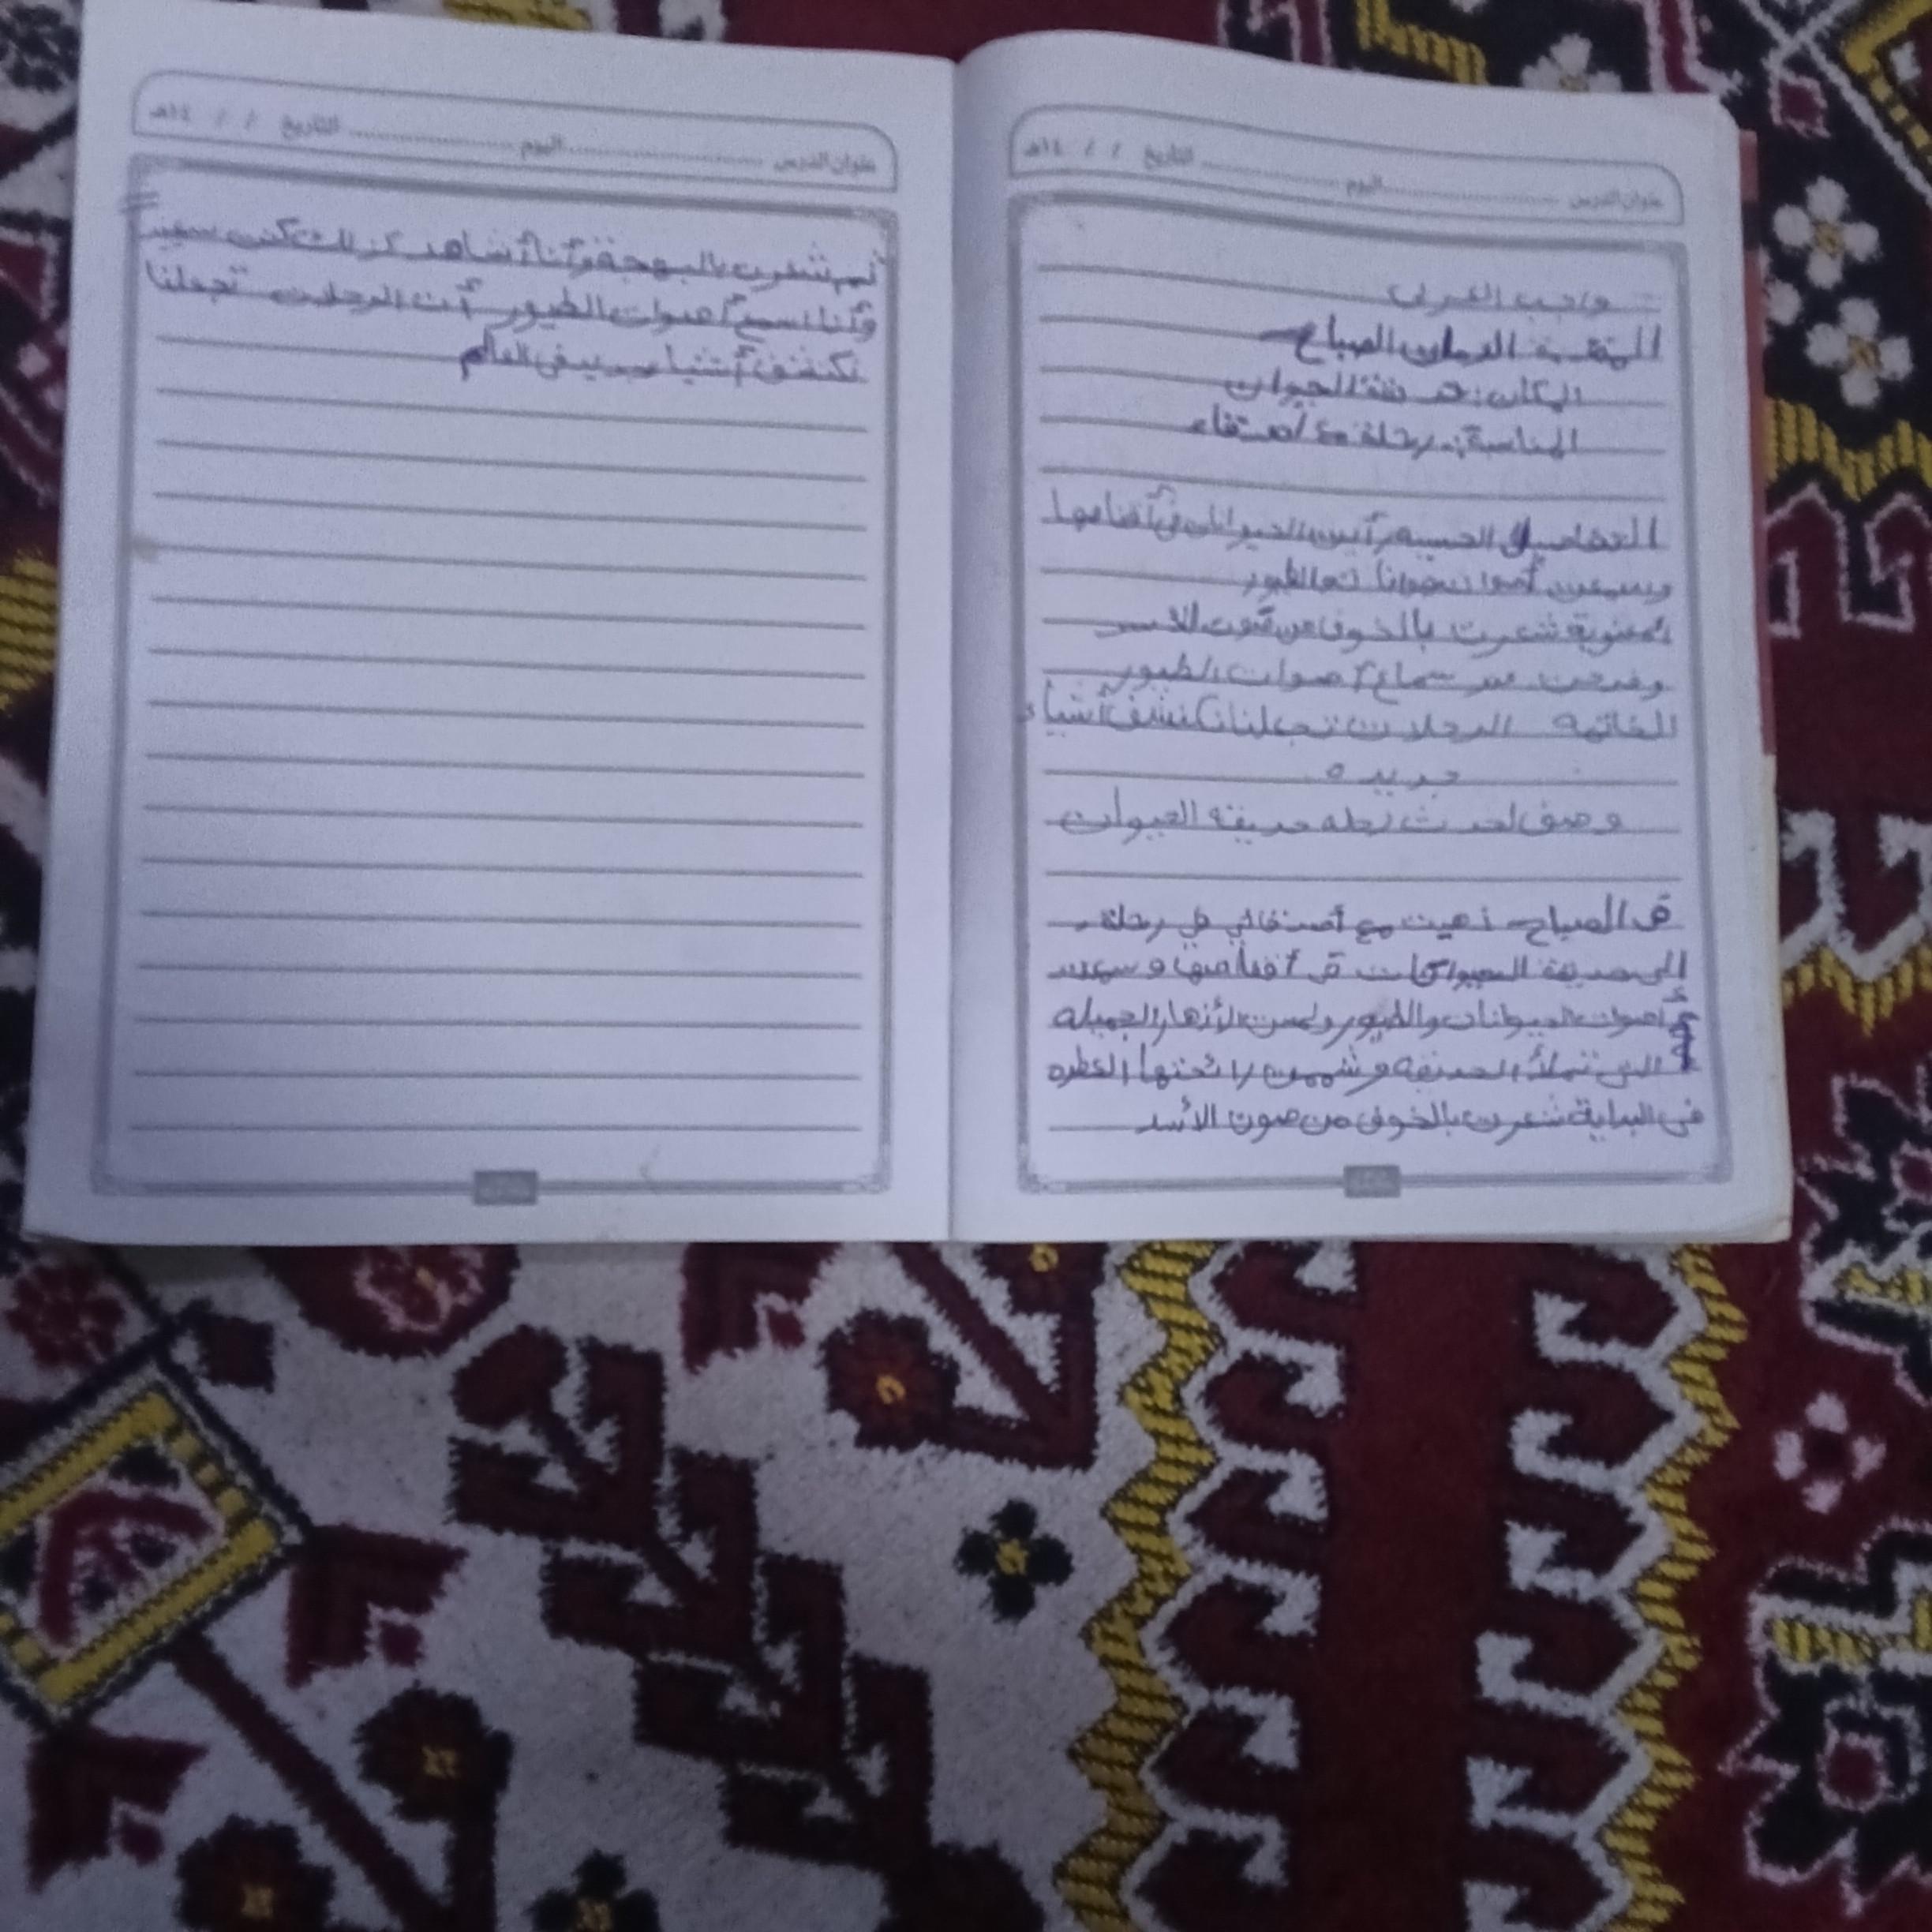 عنوان الدرس اليوم التاريخ / / ١٤هـ
واجب العربي
المقدمة الزمان الصباح
المكان: حديقة الحيوان
المناسبة: رحلة مع أصدقاء
التفاصيل الحسيه رأيت الحيوانات في أقفاصها
وسمعت الطيور
المعنوية شعرت بالخوف من صوت الاسد
وفرحت عند سماع أصوات الطيور
الخاتمة الرحلات تجعلنا نكتشف أشياء
جديده
وصف لحدث رحله حديقه الحيوان
في الصباح ذهبت مع أصدقائي في رحلة
إلى حديقة الحيوانات في أقفاصها وسمعت
أصوات الحيوانات والطيور ولمست الأزهار الجميله
التي تملأ الحديقه وشممت رائحتها العطره
في البداية شعرت بالخوف من صوت الأسد
عنوان الدرس اليوم التاريخ / / ١٤هـ
ثم شعرت بالبهجة وأنا أشاهد كذلك كنت سعيد
وأنا اسمع أصوات الطيور أن الرحلات تجعلنا
نكتشف أشياء في العالم